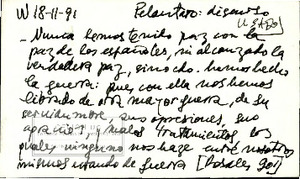 W 18-11-91 Pelantaro: discurso
USADO
- Nunca hemos tenido paz con la
paz de los españoles, ni alcanzado la
verdadera paz, sino cho. hemos hecho
la guerra: pues con ella nos hemos
librado de otra mayor guerra, de su
servidumbre, sus opresiones, sus
agravios, y malos tratamientos los
quales ninguno nos haze entre nosotros
mismos estando de guerra [Rosales 901]